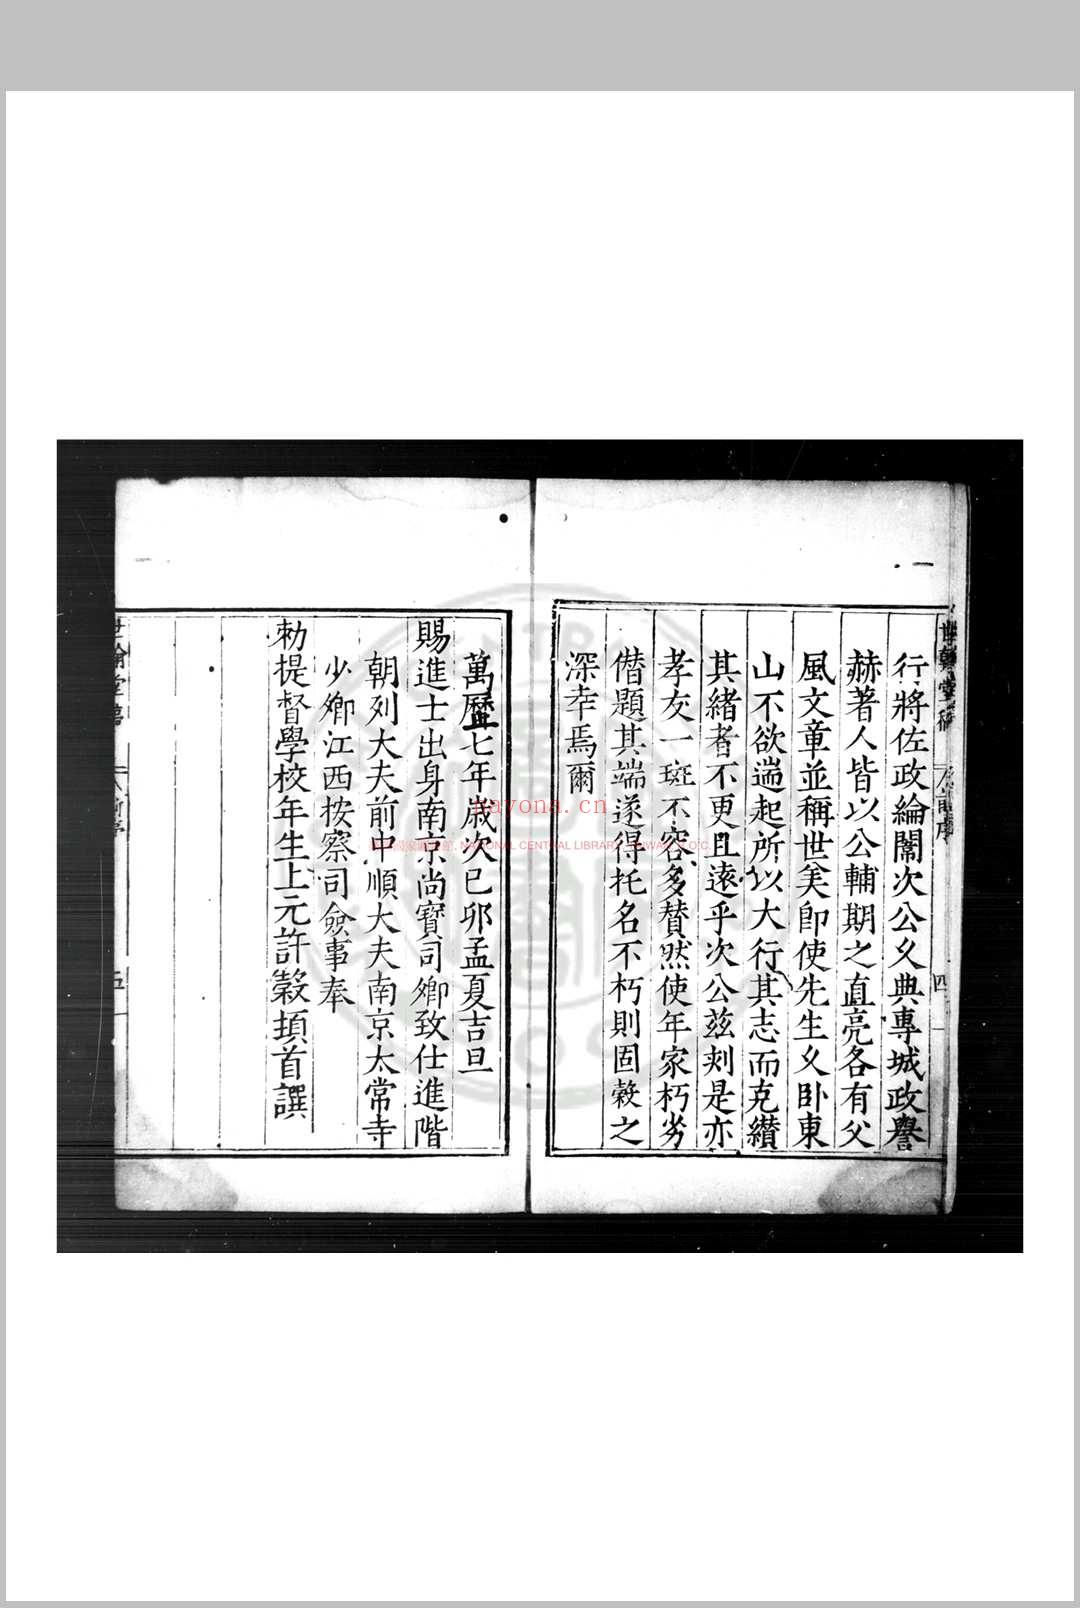 世翰堂稿 前序 四
行將佐政綸閣次公乆典專城政譽
赫著人皆以公輔期之直亮各有父
風文章並稱世美卽使先生乆卧東
山不欲遄起所以大行其志而克纉
其緒者不更且遠乎次公兹刾是亦
孝友一斑不容多賛然使年家朽劣
僣題其端遂得托名不朽則固榖之
深幸焉爾
萬曆七年歲次己卯孟夏吉旦
賜進士出身南京尚寶司鄉致仕進階
朝列大夫前中順大夫南京太常寺
少鄉江西按察司僉事奉
勑提督學校年生上元許榖頓首譔
世翰堂稿 前序 五
nayona.cn
國家圖書館, NATIONAL CENTRAL LIBRARY, TAIWAN, R.O.C.